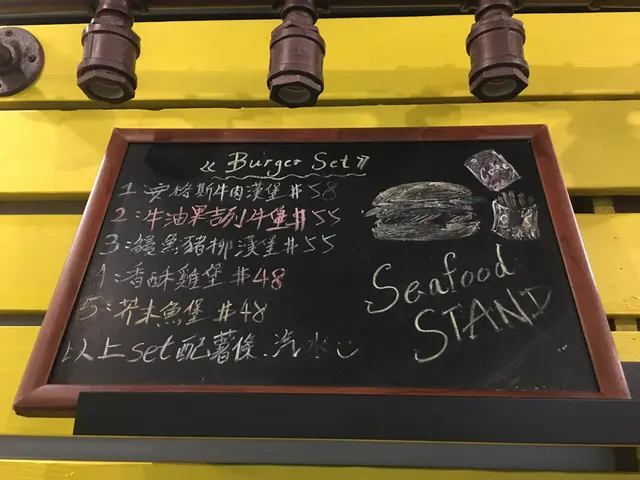 《Burger Set》
1:安格斯牛肉漢堡 #58
2:牛油果吉列牛堡 #55
3:鰻魚豬柳漢堡 #55
4:香酥雞堡 #48
5:芥末魚堡 #48
以上set配薯條.汽水
Coke
Seafood
STAND